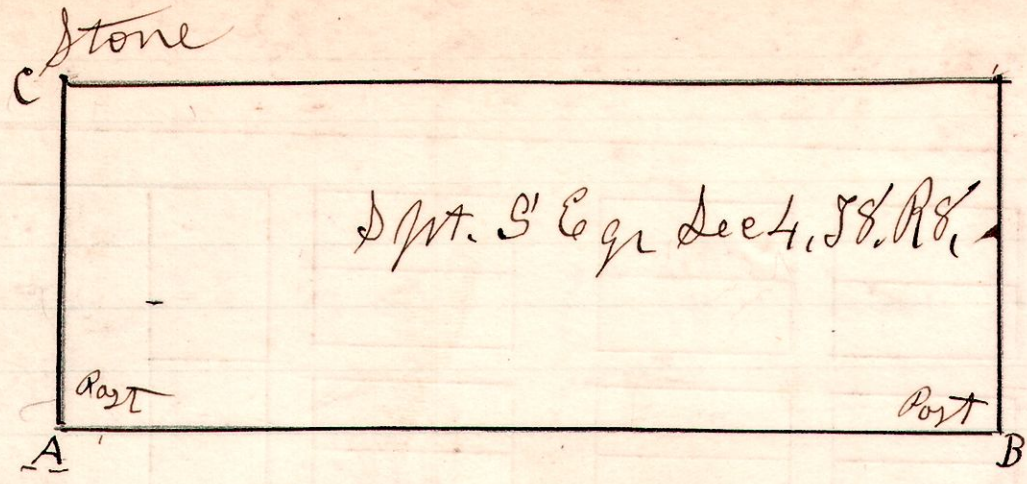 Stone
C
S pt. S E qr Sec 4, T8, R8,
Post Post
A B